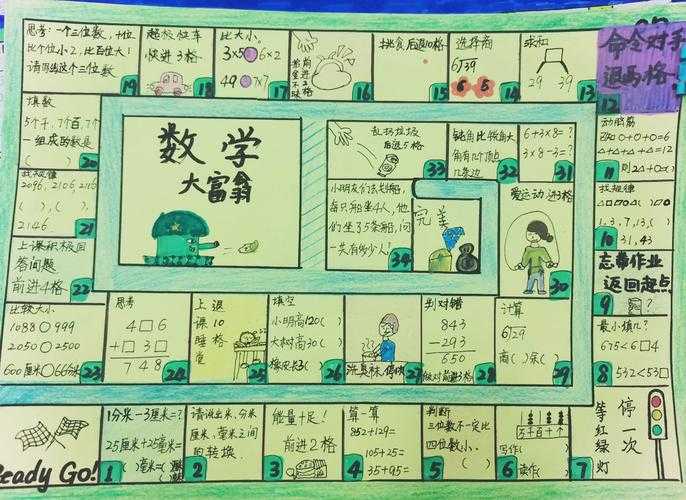 思考:一个三位数,十位
比个位小2,比百位大1
请写出这个三位数
19
超级赛车
快进3格
18
比大小。
3×5○6×2
49○7×7
17
16
挑食后退10格
15
选择商
6)39
6 5
14
求和
29 39
13
命令对手
退两格
12
填数
5个千,7个百,7个
一组成的数是
( )
20
数学
大富翁
乱扔垃圾
后退5格
33
钝角比较角大
角有几个顶点
几条边
32
6+3×8=?
3×8-3=?
31
动脑筋
□+○+○+○=6
△+△+△+△=12
则2△+○=( )
11
找规律
2096, 2106, 2116
( ), ( ),
2146
21
小朋友们去划船,
每只船坐4人,他
们坐了5条船,问
一共有多少人!
34
完美
爱运动 进3格
30
找规律
1, 3, 7, 13, ( )
31, 43
10
上课积极回
答问题
前进4格
22
忘带作业
返回起点
9
?
比较大小
1088○999
2050○2500
600厘米○66分米
23
思考
4□6
+□3□
748
24
上退
课10
睡格
觉
25
填空
小明高120( )
大树高30( )
橡皮长3( )
26
27
判对错
843
-293
650
做对前进3格
28
计算
6)29
商( )余( )
29
最小填几?
675<6□4
532<53□
8
Ready Go!
1分米-3厘米=?
25厘米+25毫米=
( )毫米=( )
1
请说出米,分米
厘米,毫米之间
的转换.
2
能量十足!
前进2格
3
算一算
852+129=
105+25=
35+95=
4
判断
三位数不一定比
四位数小。
( )
5
万千百十个
写作( )
读作( )
6
等 停
红 一
绿 次
灯
7